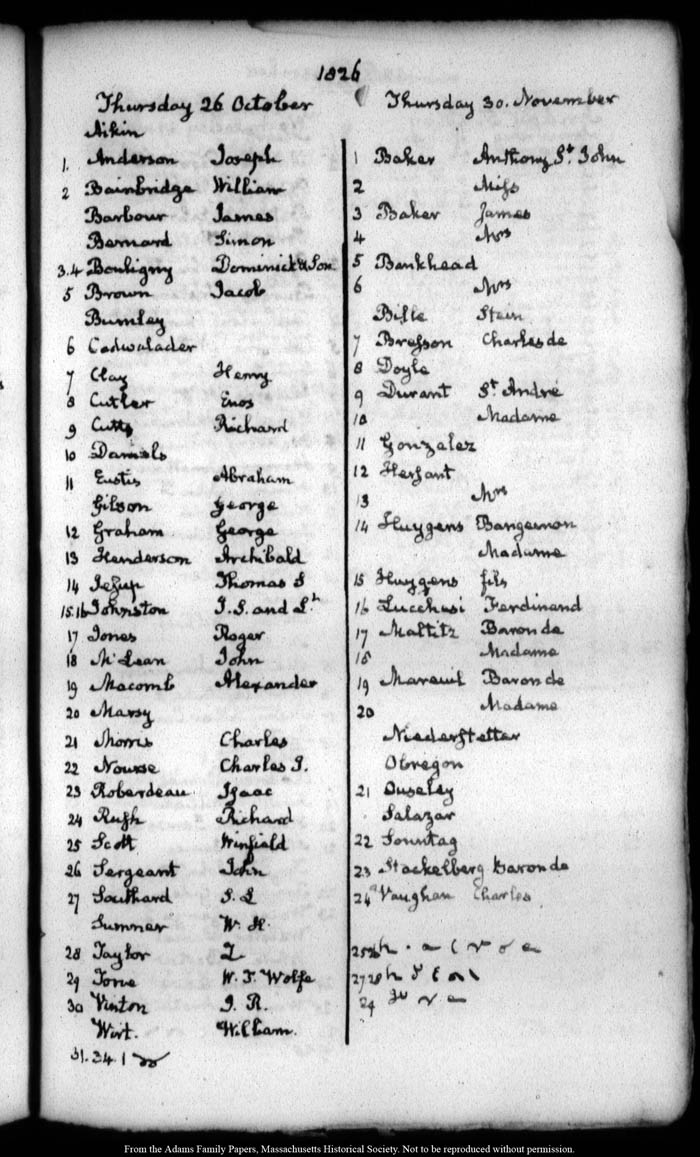 1826
Thursday 26 October
Aikin
1. Anderson Joseph
2 Bainbridge William
Barbour James
Bernard Simon
3.4 Bouligny Dominick & Son
5 Brown Jacob
Bumley
6 Cadwalader
7 Clay Henry
8 Cutler Enos
9 Cutts Richard
10 Daniels
11 Eustis Abraham
Gibson George
12 Graham George
13 Henderson Archibald
14 Jesup Thomas S
15.16 Johnston J. S. and Lt
17 Jones Roger
18 McLean John
19 Macomb Alexander
20 Marsy
21 Morris Charles
22 Nourse Charles J.
23 Roberdeau Isaac
24 Rush Richard
25 Scott Winfield
26 Sergeant John
27 Southard S. L
Sumner W. H.
28 Taylor Z
29 Tone W. T. Wolfe
30 Vinton J. R.
Wirt. William.
31.34.1
Thursday 30. November
1 Baker Anthony St. John
2 Miss
3 Baker James
4 Mrs
5 Bankhead
6 Mrs
Bille Stein
7 Bresson Charles de
8 Doyle
9 Durant St. André
10 Madame
11 Gonzalez
12 Hersant
13 Mrs
14 Huygens Bangeman
Madame
15 Huygens fils
16 Lucchesi Ferdinand
17 Maltitz Baron de
18 Madame
19 Mareuil Baron de
20 Madame
Niederstetter
Obregon
21 Ouseley
Salazar
22 Sonntag
23 Stackelberg Baron de
24 Vaughan Charles
25 26
27 28
29
From the Adams Family Papers, Massachusetts Historical Society. Not to be reproduced without permission.